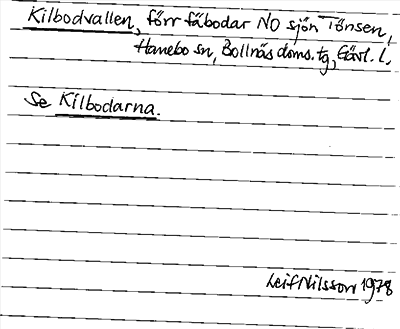 Kilbodvallen, förr fäbodar NO sjön Tönsen,
Hanebo sn, Bollnäs doms. tg, Gävl. l.
Se Kilbodarna.
Leif Nilsson 1978